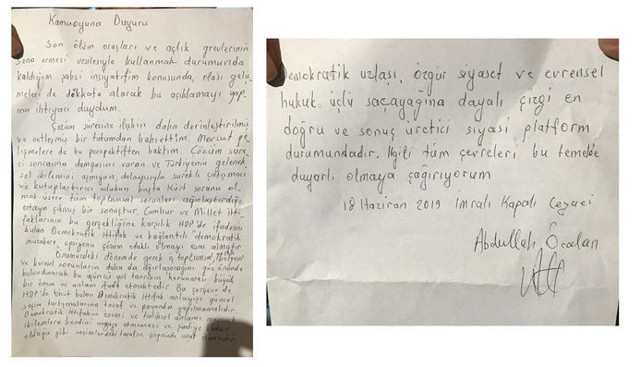 Kamuoyuna Duyuru
Son ölüm oruçları ve açlık grevlerinin
sona ermesi vesilesiyle kullanmak durumunda
kaldığım şahsi insiyatifim konusunda, olası geliş
meleri de dikkate alarak bu açıklamayı yap-
ma ihtiyacı duydum.
Çözüm sürecine ilişkin daha derinleştirilmiş
ve netleşmiş bir tutumdan bahsettim. Mevcut ge
lişmelere de bu perspektiften baktım. Çözüm süre
ci sonrasına damgasını vuran ve Türkiyenin gelenek
sel ikilemini aşmayan dolayısıyla sürekli çatışmacı
ve kutuplaştırıcı üslubun başta Kürt sorunu ol
mak üzere tüm toplumsal sorunları ağırlaştırdığı
ortaya çıkmış bir sonuçtur. Cumhur ve Millet itti
faklarının bu gerçekliğine karşılık HDP'de ifadesini
bulan Demokratik ittifak ve bağlantılı "demokratik
müzakere çözüm odaklı olmayı esas almıştır.
Önümüzdeki dönemde gerek iç toplumsal,
ve küresel sorunların daha da ağırlaşacağını göz önünde
bulundurarak bu üçüncü yol tavrının korunması büyük
bir önem ve anlam ifade etmektedir. Bu çerçeve de
HDP'de vücut bulan Demokratik ittifak anlayışı güncel
seçim tartışmalarına taraf ve payanda yapılmamalıdır.
Demokratik ittifakın önemi ve tarihsel anlamı mevcut
ikilemlere kendini etmemesi ve şimdiye kadar
olduğu gibi seçimlerdeki tarafsız
Demokratik uzlaşı, özgür siyaset ve evrensel
hukuk üçlü saçayağına dayalı çizgi en
doğru ve sonuç üretici siyasi platform
durumundadır. İlgili tüm çevreleri bu temelde
duyarlı olmaya çağırıyorum
18 Haziran 2019 İmralı Kapalı Cezaevi
Abdullah Öcalan